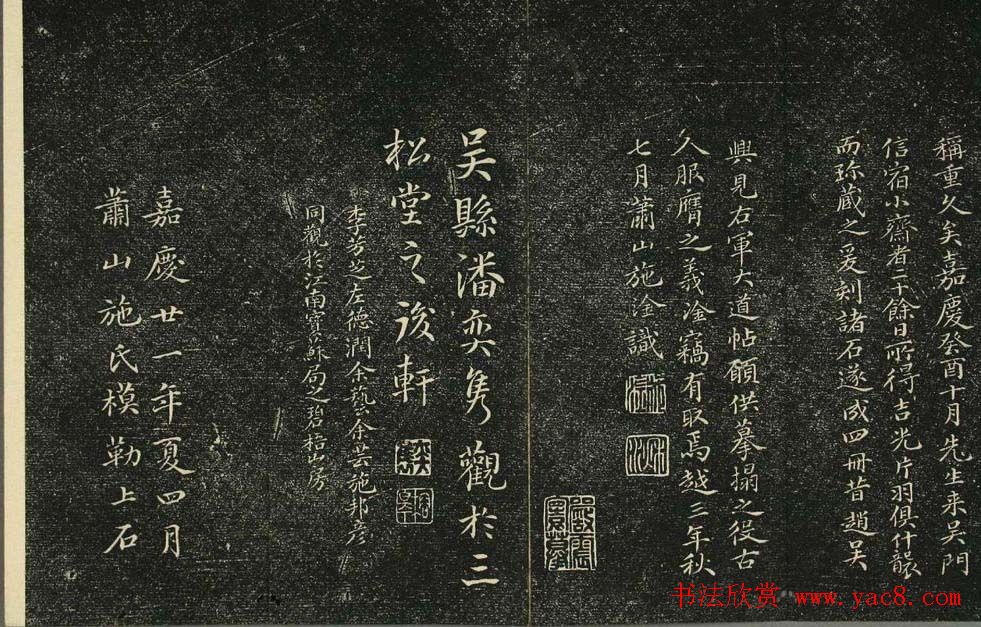 稱重久矣嘉慶癸酉十月先生来吴門
信宿小齋者二十餘日所得吉光片羽俱什襲
而珎藏之爰刻諸石遂成四冊昔趙吴
興見右軍大道帖願供摹搨之役古
人服膺之義淦竊有取焉越三年秋
七月蕭山施淦識
吴縣潘奕雋觀於三
松堂之後軒
李芳芝左德潤余藝余芸施邦彦
同觀於江南寶蘇局之碧梧山房
嘉慶廿一年夏四月
蕭山施氏模勒上石
书法欣赏 www.yac8.com